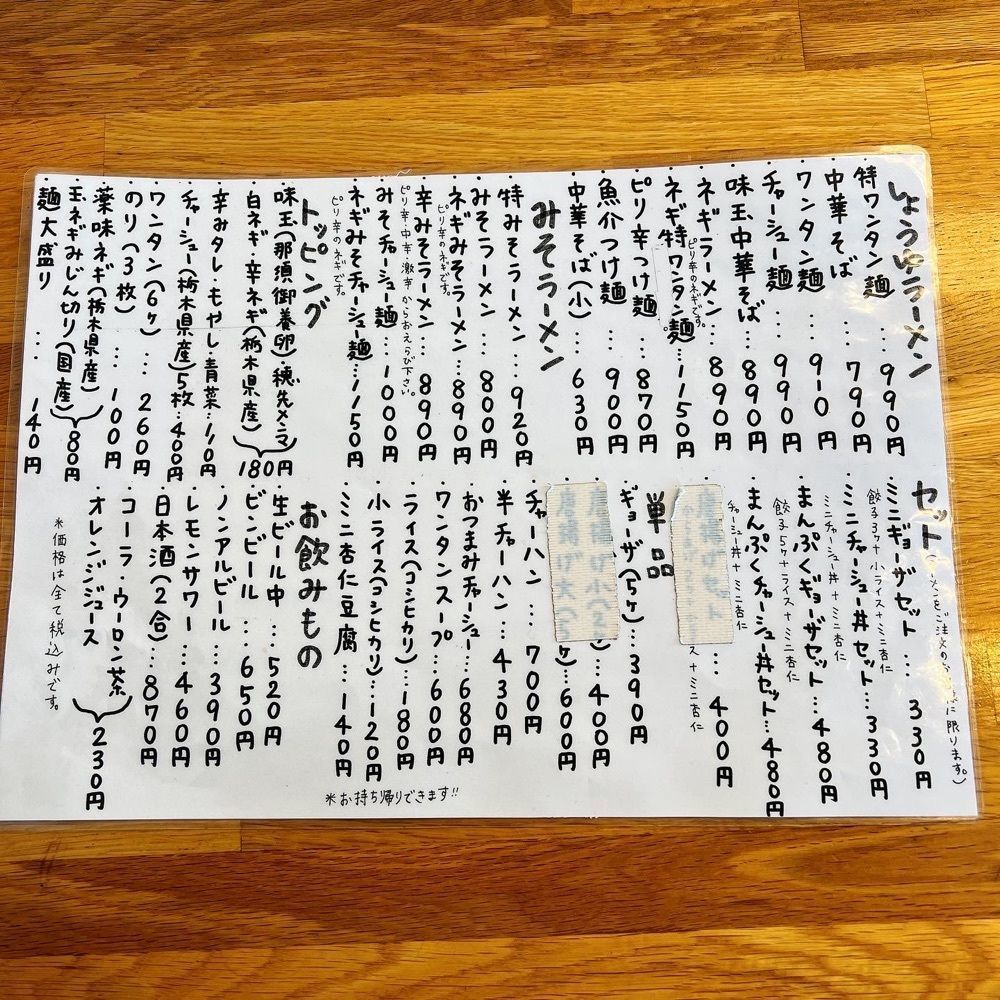 しょうゆラーメン
・特ワンタン麺…990円
・中華そば…790円
・ワンタン麺…910円
・チャーシュー麺…990円
・味玉中華そば…890円
・ネギラーメン…890円
ピリ辛のネギです。
・ネギ特ワンタン麺…1150円
・ピリ辛つけ麺…870円
・魚介つけ麺…900円
・中華そば(小)…630円
みそラーメン
・特みそラーメン…920円
・みそラーメン…800円
・ネギみそラーメン…890円
ピリ辛のネギです。
・辛みそラーメン…890円
ピリ辛・中辛・激辛からおえらび下さい。
・みそチャーシュー麺…1000円
・ネギみそチャーシュー麺…1150円
ピリ辛のネギです。
トッピング
・味玉(那須御養卵)・穂先メンマ
・白ネギ・辛ネギ(栃木県産)
180円
・辛みタレ・もやし・青菜…110円
・チャーシュー(栃木県産)5枚…400円
・ワンタン(6ヶ)…260円
・のり(3枚)…100円
・薬味ネギ(栃木県産)
・玉ネギみじん切り(国産)
80円
・麺大盛り…140円
セット
限ります。)
・ミニギョーザセット…330円
餃子3ヶ+小ライス+ミニ杏仁
・ミニチャーシュー丼セット…330円
ミニチャーシュー丼+ミニ杏仁
・まんぷくギョーザセット…480円
餃子5ヶ+ライス+ミニ杏仁
・まんぷくチャーシュー丼セット…480円
チャーシュー丼+ミニ杏仁
唐揚げセット…400円
ス+ミニ杏仁
単品
・ギョーザ(5ヶ)…390円
唐揚げ小(2ヶ)…400円
唐揚げ大(5ヶ)…600円
・チャーハン…700円
・半チャーハン…430円
・おつまみチャーシュー…680円
・ワンタンスープ…600円
・ライス(コシヒカリ)…180円
・小ライス(コシヒカリ)…120円
・ミニ杏仁豆腐…140円
※お持ち帰りできます!!
お飲みもの
・生ビール中…520円
・ビンビール…650円
・ノンアルビール…390円
・レモンサワー…460円
・日本酒(2合)…870円
・コーラ・ウーロン茶
・オレンジジュース
…230円
※価格は全て税込みです。